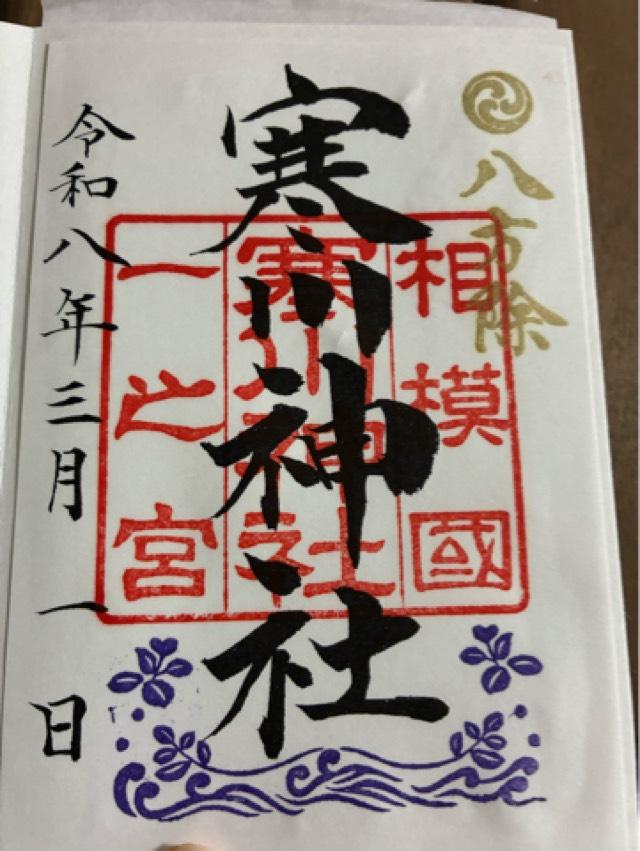 八方除
相模國
寒川神社
一之宮
寒川神社
令和八年三月一日